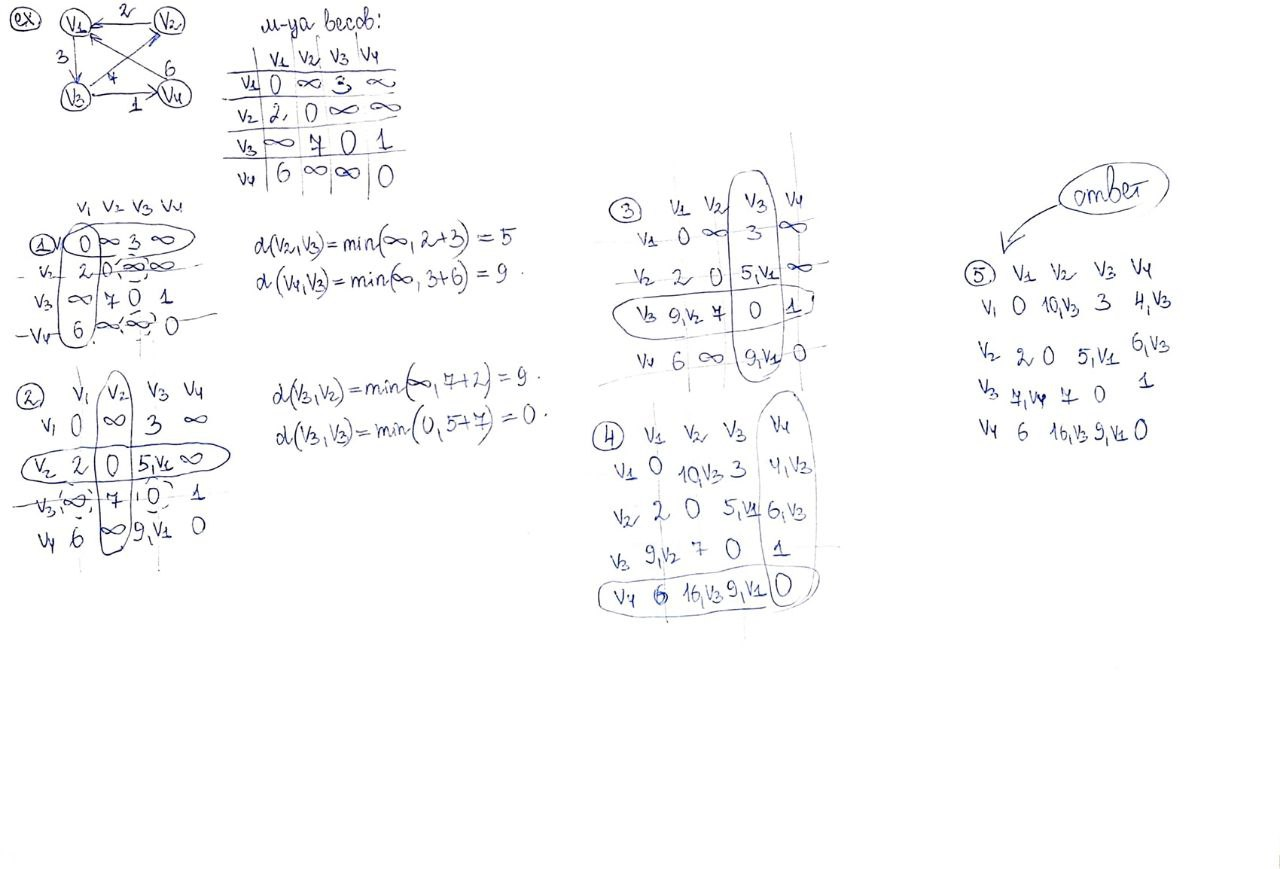 ex
V1 2 V2
3 7 6
V3 1 V4
м-ца весов:
V1 V2 V3 V4
V1 0 ∞ 3 ∞
V2 2 0 ∞ ∞
V3 ∞ 7 0 1
V4 6 ∞ ∞ 0
V1 V2 V3 V4
① V1 0 ∞ 3 ∞
V2 2 0 ∞ ∞
V3 ∞ 7 0 1
V4 6 ∞ ∞ 0
d(V2,V3)=min(∞, 2+3) = 5
d(V4,V3)=min(∞, 3+6) = 9.
② V1 V2 V3 V4
V1 0 ∞ 3 ∞
V2 2 0 5,V1 ∞
V3 ∞ 7 0 1
V4 6 ∞ 9,V1 0
d(V3,V2)=min(∞, 7+2) = 9.
d(V3,V3)=min(0, 5+7) = 0.
③ V1 V2 V3 V4
V1 0 ∞ 3 ∞
V2 2 0 5,V1 ∞
V3 9,V2 7 0 1
V4 6 ∞ 9,V1 0
④ V1 V2 V3 V4
V1 0 10,V3 3 4,V3
V2 2 0 5,V1 6,V3
V3 9,V2 7 0 1
V4 6 16,V3 9,V1 0
ответ
⑤ V1 V2 V3 V4
V1 0 10,V3 3 4,V3
V2 2 0 5,V1 6,V3
V3 7,V4 7 0 1
V4 6 16,V3 9,V1 0